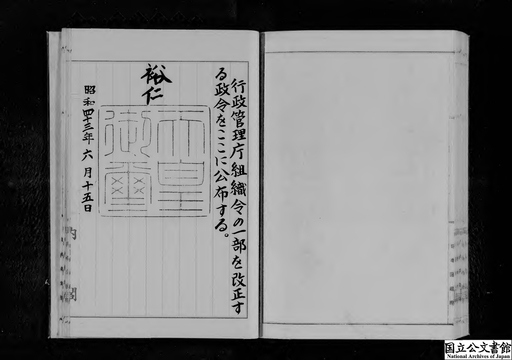 行政管理庁組織令の一部を改正す
る政令をここに公布する。
裕仁
天皇
御璽
昭和四十三年六月十五日
内閣
国立公文書館
National Archives of Japan